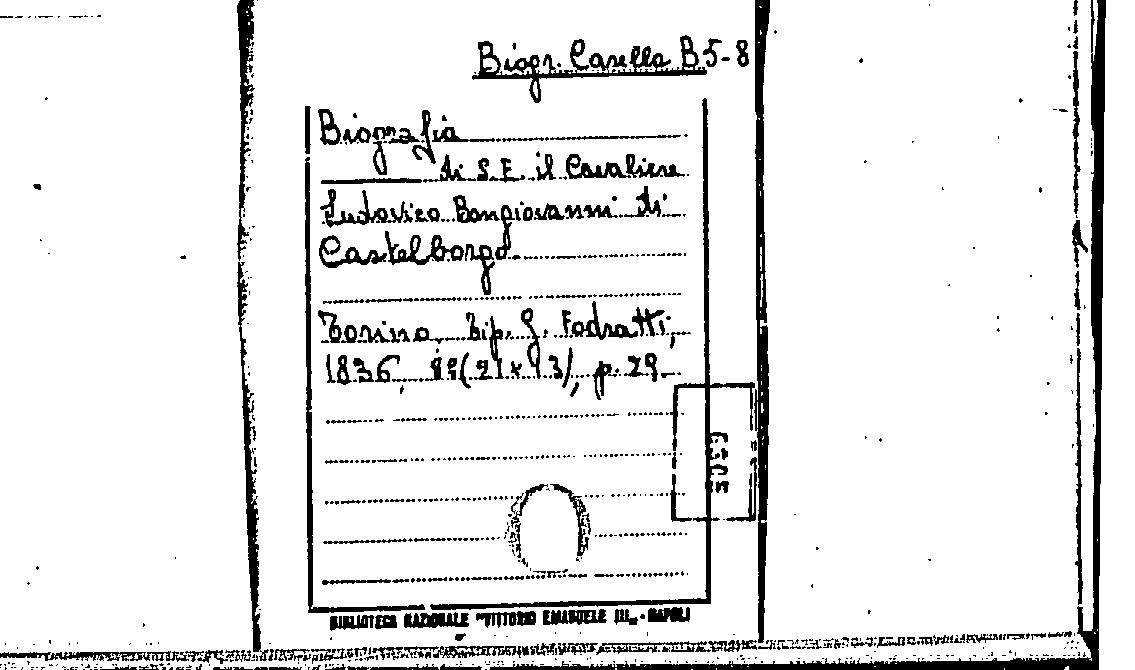 Biogr. Casella B5-8
Biografia
di S.E. il Cavaliere
Ludovico Bongiovanni di
Castelborgo.
Torino, Tip. G. Fodratti,
1836, 8º (21x13), p. 29.
BIBLIOTECA NAZIONALE "VITTORIO EMANUELE III„ - NAPOLI